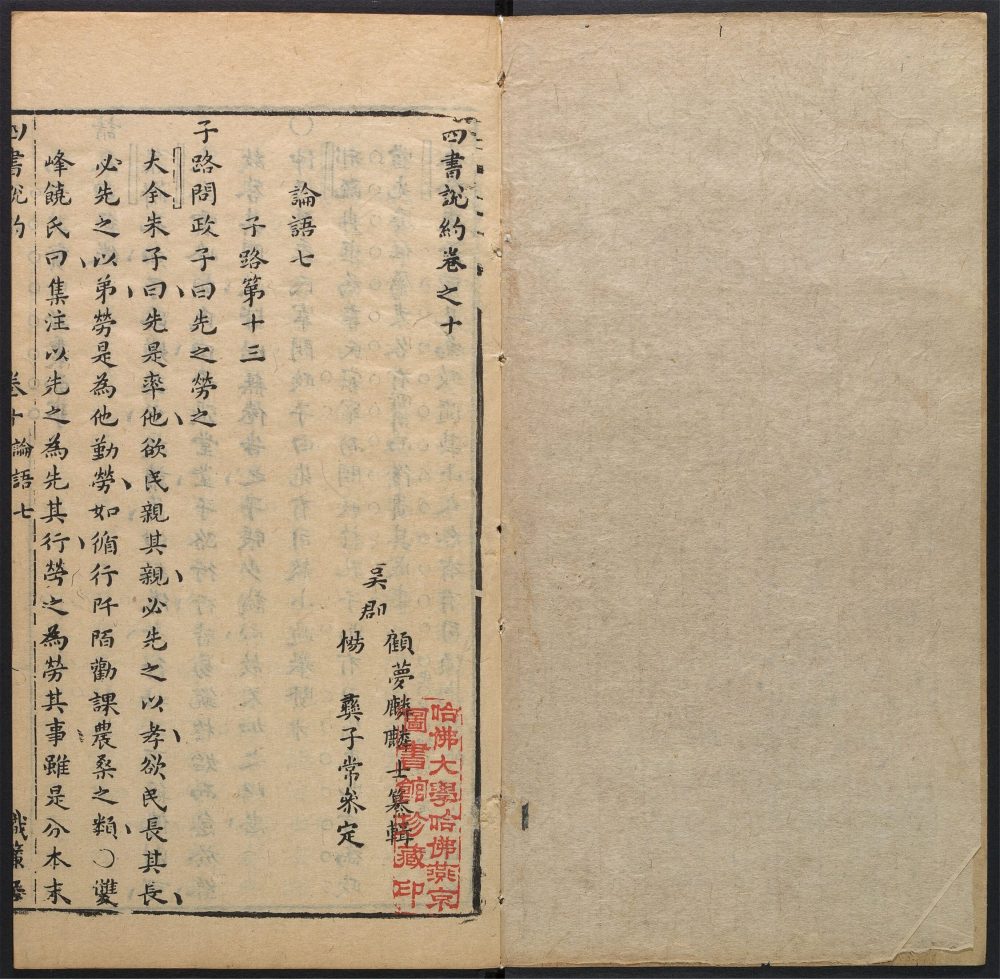 四書說約卷之十
吳郡
顧夢麟麟士纂輯
楊彝子常參定
論語七
子路第十三
子路問政子曰先之勞之
大全朱子曰先是率他欲民親其親必先之以孝欲民長其長
必先之以弟勞是為他勤勞如循行阡陌勸課農桑之類○雙
峰饒氏曰集注以先之為先其行勞之為勞其事雖是分本末
四書說約 卷十論語七 織簾居
哈佛大學哈佛燕京
圖書館珍藏印